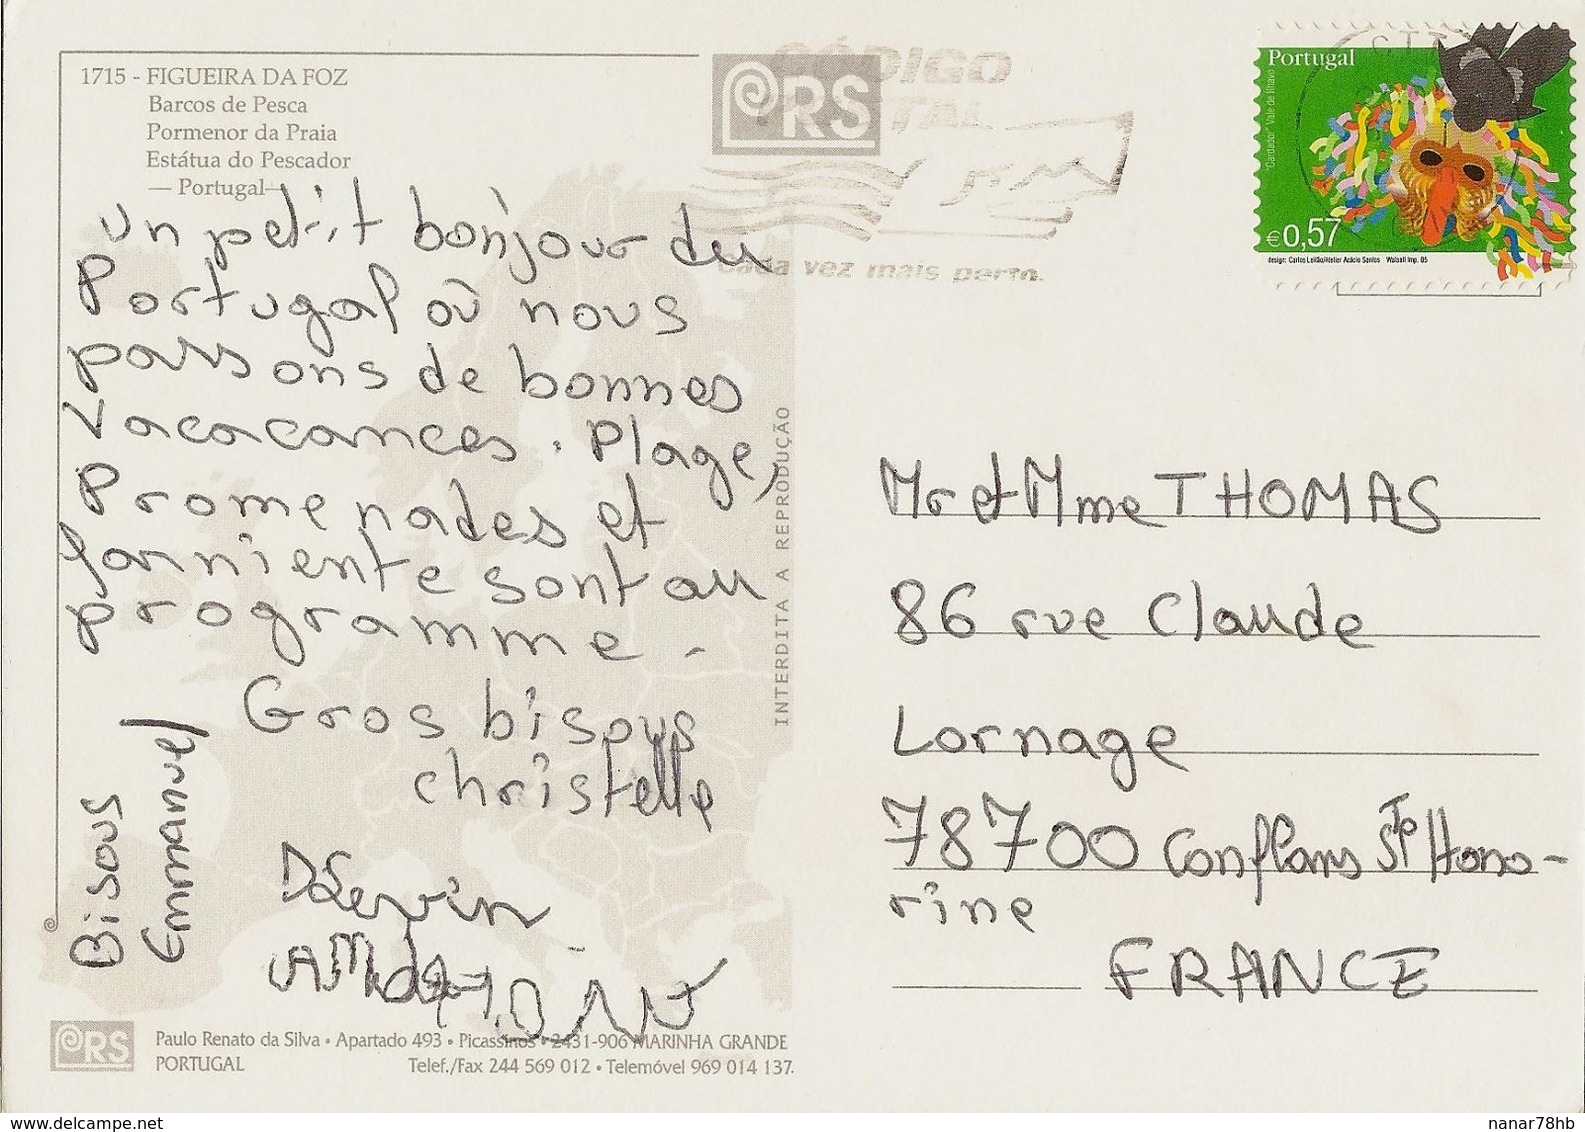 1715 - FIGUEIRA DA FOZ
Barcos de Pesca
Pormenor da Praia
Estátua do Pescador
— Portugal —
un petit bonjour du
Portugal où nous
passons de bonnes
Vacacances. Plage,
Promenades et
farniente sont au
programme.
Gros bisous
christelle
Bisous
Emmanuel
INTERDITA A REPRODUÇÃO
PRS
CÓDIGO
POSTAL
Cada vez mais perto.
Portugal
"Cardador" Vale de Ílhavo
€0,57
design: Carlos Leitão/Atelier Acácio Santos Walsall Imp. 05
Mr et Mme THOMAS
86 rue Claude
Lornage
78700 Conflans Ste Hono-
rine
FRANCE
PRS
Paulo Renato da Silva • Apartado 493 • Picassinos • 2431-906 MARINHA GRANDE
PORTUGAL Telef./Fax 244 569 012 • Telemóvel 969 014 137.
www.delcampe.net
nanar78hb